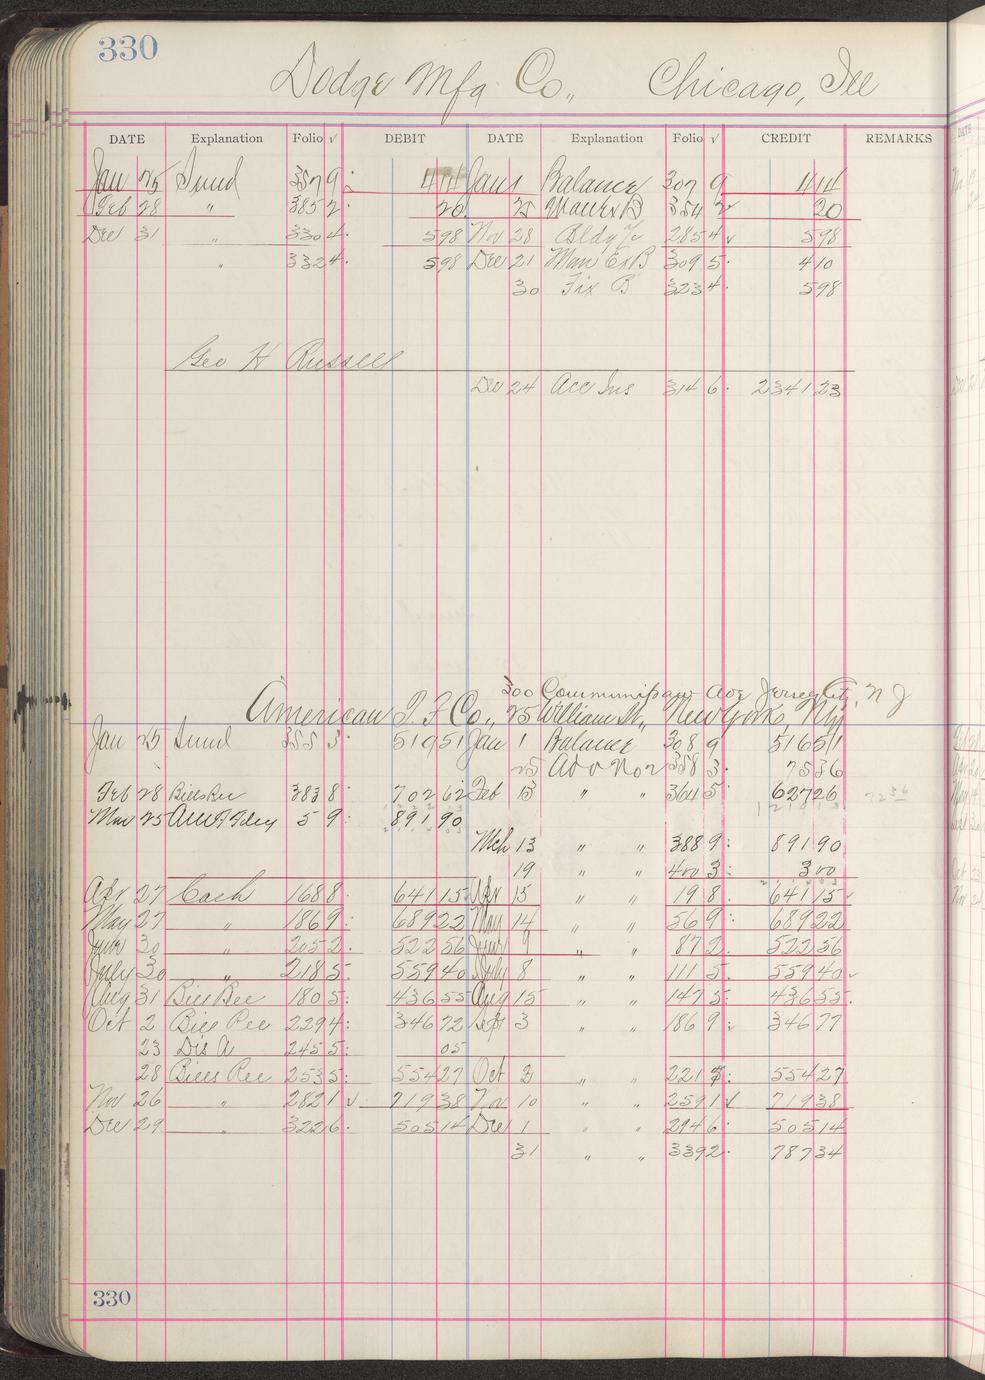 330
Dodge Mfg Co., Chicago, Ill
DATE Explanation Folio √ DEBIT DATE Explanation Folio √ CREDIT REMARKS
Jan 25 Sund 357 9 4 14 Jan 1 Balance 307 9 4 14
Feb 28 " 385 2 20 25 Man Ex B 354 2 20
Dec 31 " 330 4 5 98 Nov 28 Bldg 285 4 √ 5 98
" 332 4 5 98 Dec 21 Man Ex B 309 5 4 10
30 Fix B 323 4 5 98
Geo H Russell
Dec 24 Acc Ins 314 6 2341 23
300 Communipaw Ave Jersey City, N J
American Co., 25 William St., New York, Ny
Jan 25 Sund 355 3 519 51 Jan 1 Balance 308 9 516 51
25 Adv Nor 358 3 75 36
Feb 28 Bills Rec 383 8 702 62 Feb 13 " " 364 5 627 26
Mar 25 5 9 891 90
Mch 13 " " 388 9 891 90
19 " " 400 3 3 00
Apr 27 Cash 168 8 641 15 Apr 15 " " 19 8 641 15
May 27 " 186 9 689 22 May 14 " " 56 9 689 22
June 30 " 205 2 522 56 June 9 " " 87 2 522 56
July 30 " 218 5 559 40 July 8 " " 111 5 559 40
Aug 31 Bill Rec 180 5 436 55 Aug 15 " " 147 5 436 55
Oct 2 Bill Rec 229 4 346 72 Sept 3 " " 186 9 346 77
23 Dis A 245 5 05
28 Bills Rec 253 5 554 27 Oct 2 " " 221 3 554 27
Nov 26 " 282 1 √ 719 38 Nov 10 " " 259 1 √ 719 38
Dec 29 " 322 6 505 14 Dec 1 " " 294 6 505 14
31 " " 339 2 787 34
330